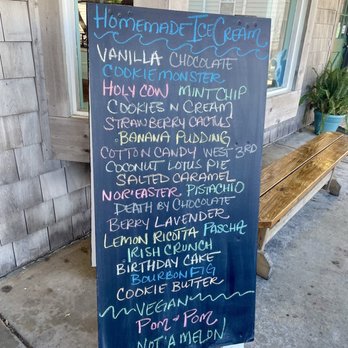 HOMEMADE ICE CREAM
VANILLA CHOCOLATE
COOKIE MONSTER
HOLY COW MINT CHIP
COOKIES N CREAM
STRAWBERRY CACTUS
BANANA PUDDING
COTTON CANDY WEST 3RD
COCONUT LOTUS PIE
SALTED CARAMEL
NOR'EASTER PISTACHIO
DEATH BY CHOCOLATE
BERRY LAVENDER
LEMON RICOTTA PASCHA
IRISH CRUNCH
BIRTHDAY CAKE
BOURBON FIG
COOKIE BUTTER
VEGAN
POM - POM
NOT 'A MELON